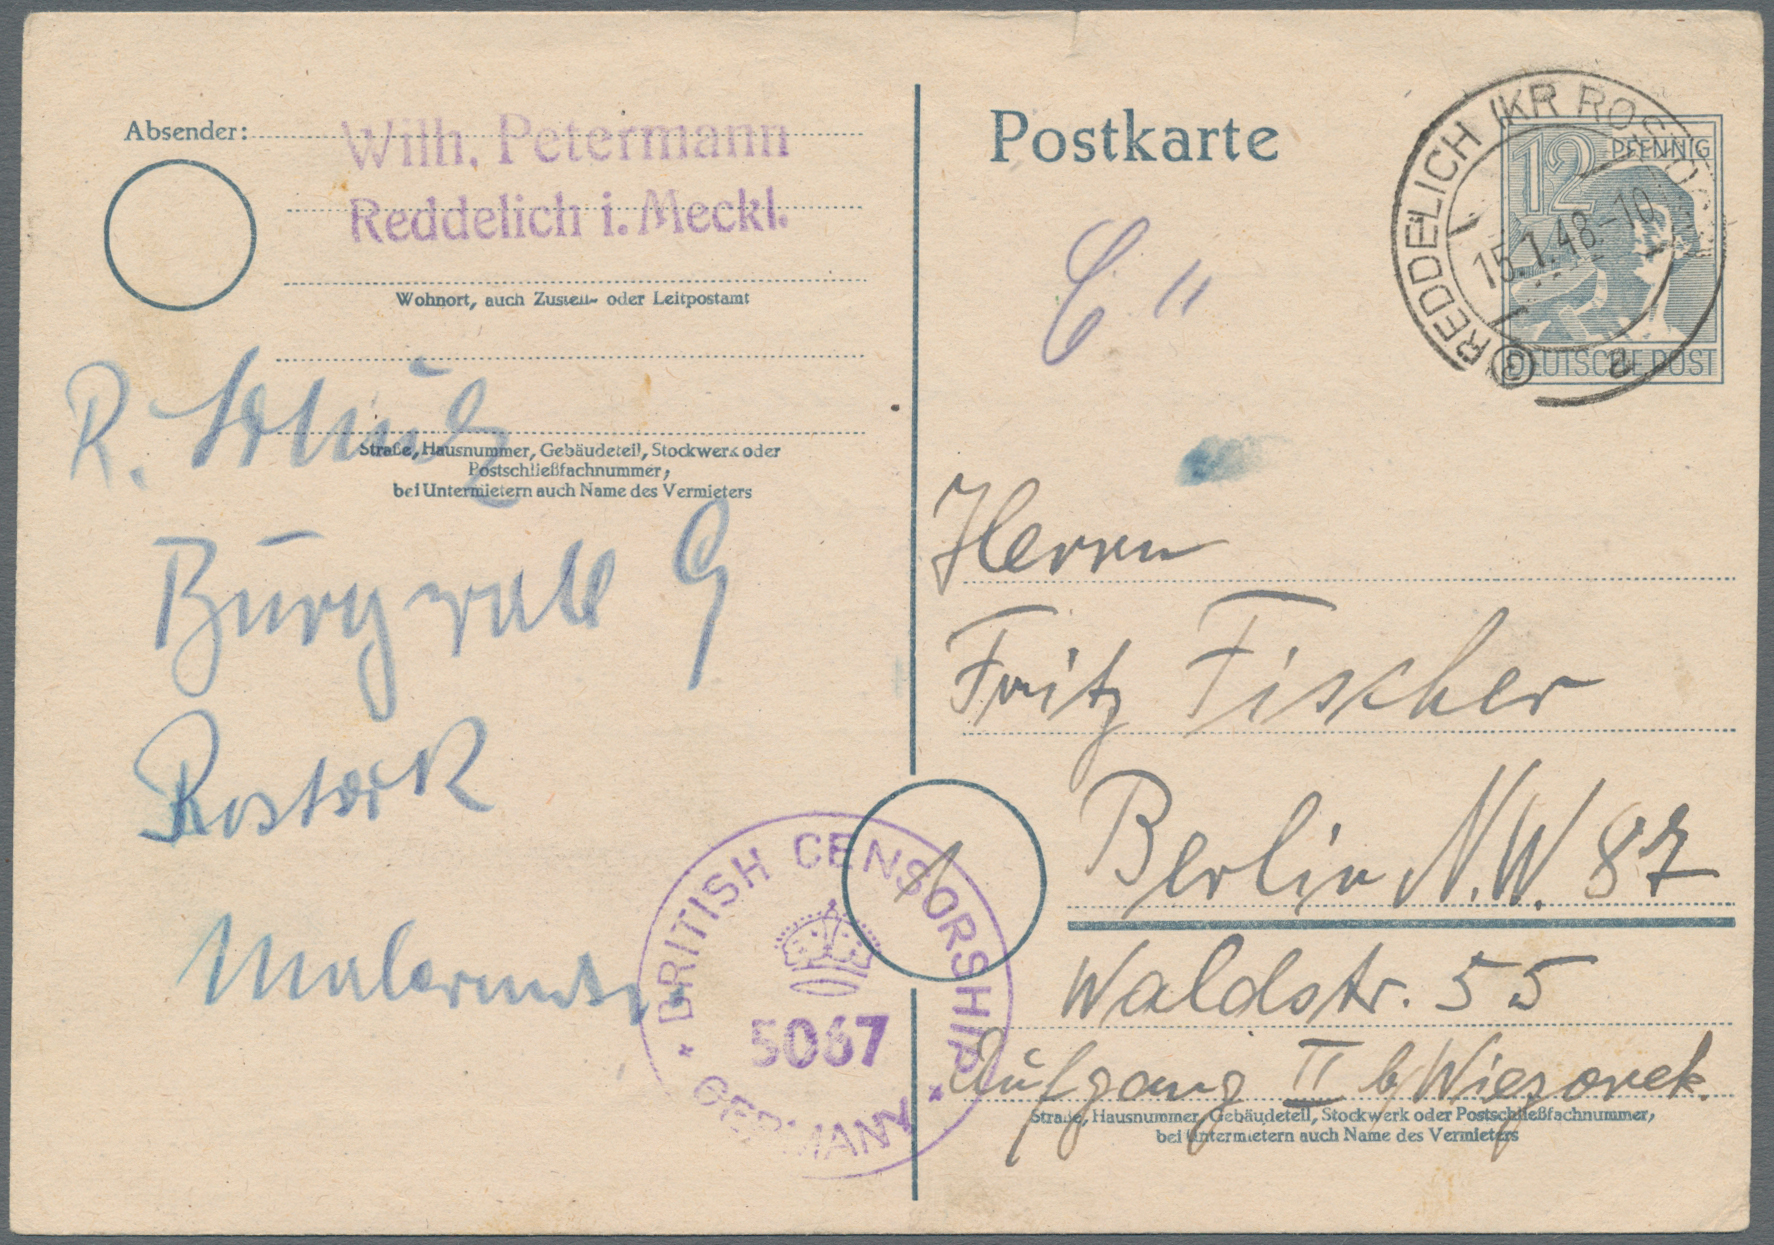 Absender:
Wilh. Petermann
Reddelich i. Meckl.
Wohnort, auch Zustell- oder Leitpostamt
Straße, Hausnummer, Gebäudeteil, Stockwerk oder
Postschließfachnummer,
bei Untermietern auch Name des Vermieters
R. Schulz
Burgwall 9
Rostock
BRITISH CENSORSHIP
5067
GERMANY
Postkarte
REDDELICH (KR ROSTOCK)
15.1.48.-10
a
12 PFENNIG
DEUTSCHE POST
Herrn
Fritz Fischer
Berlin N.W. 87
Waldstr. 55
Aufgang II b/Wiezorek.
Straße, Hausnummer, Gebäudeteil, Stockwerk oder Postschließfachnummer,
bei Untermietern auch Name des Vermieters